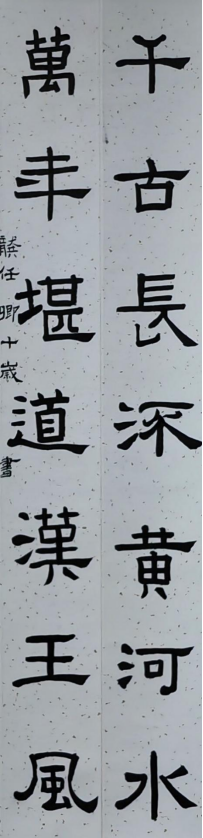 千古長深黄河水
萬年堪道漢王風
龔任卿十歲書